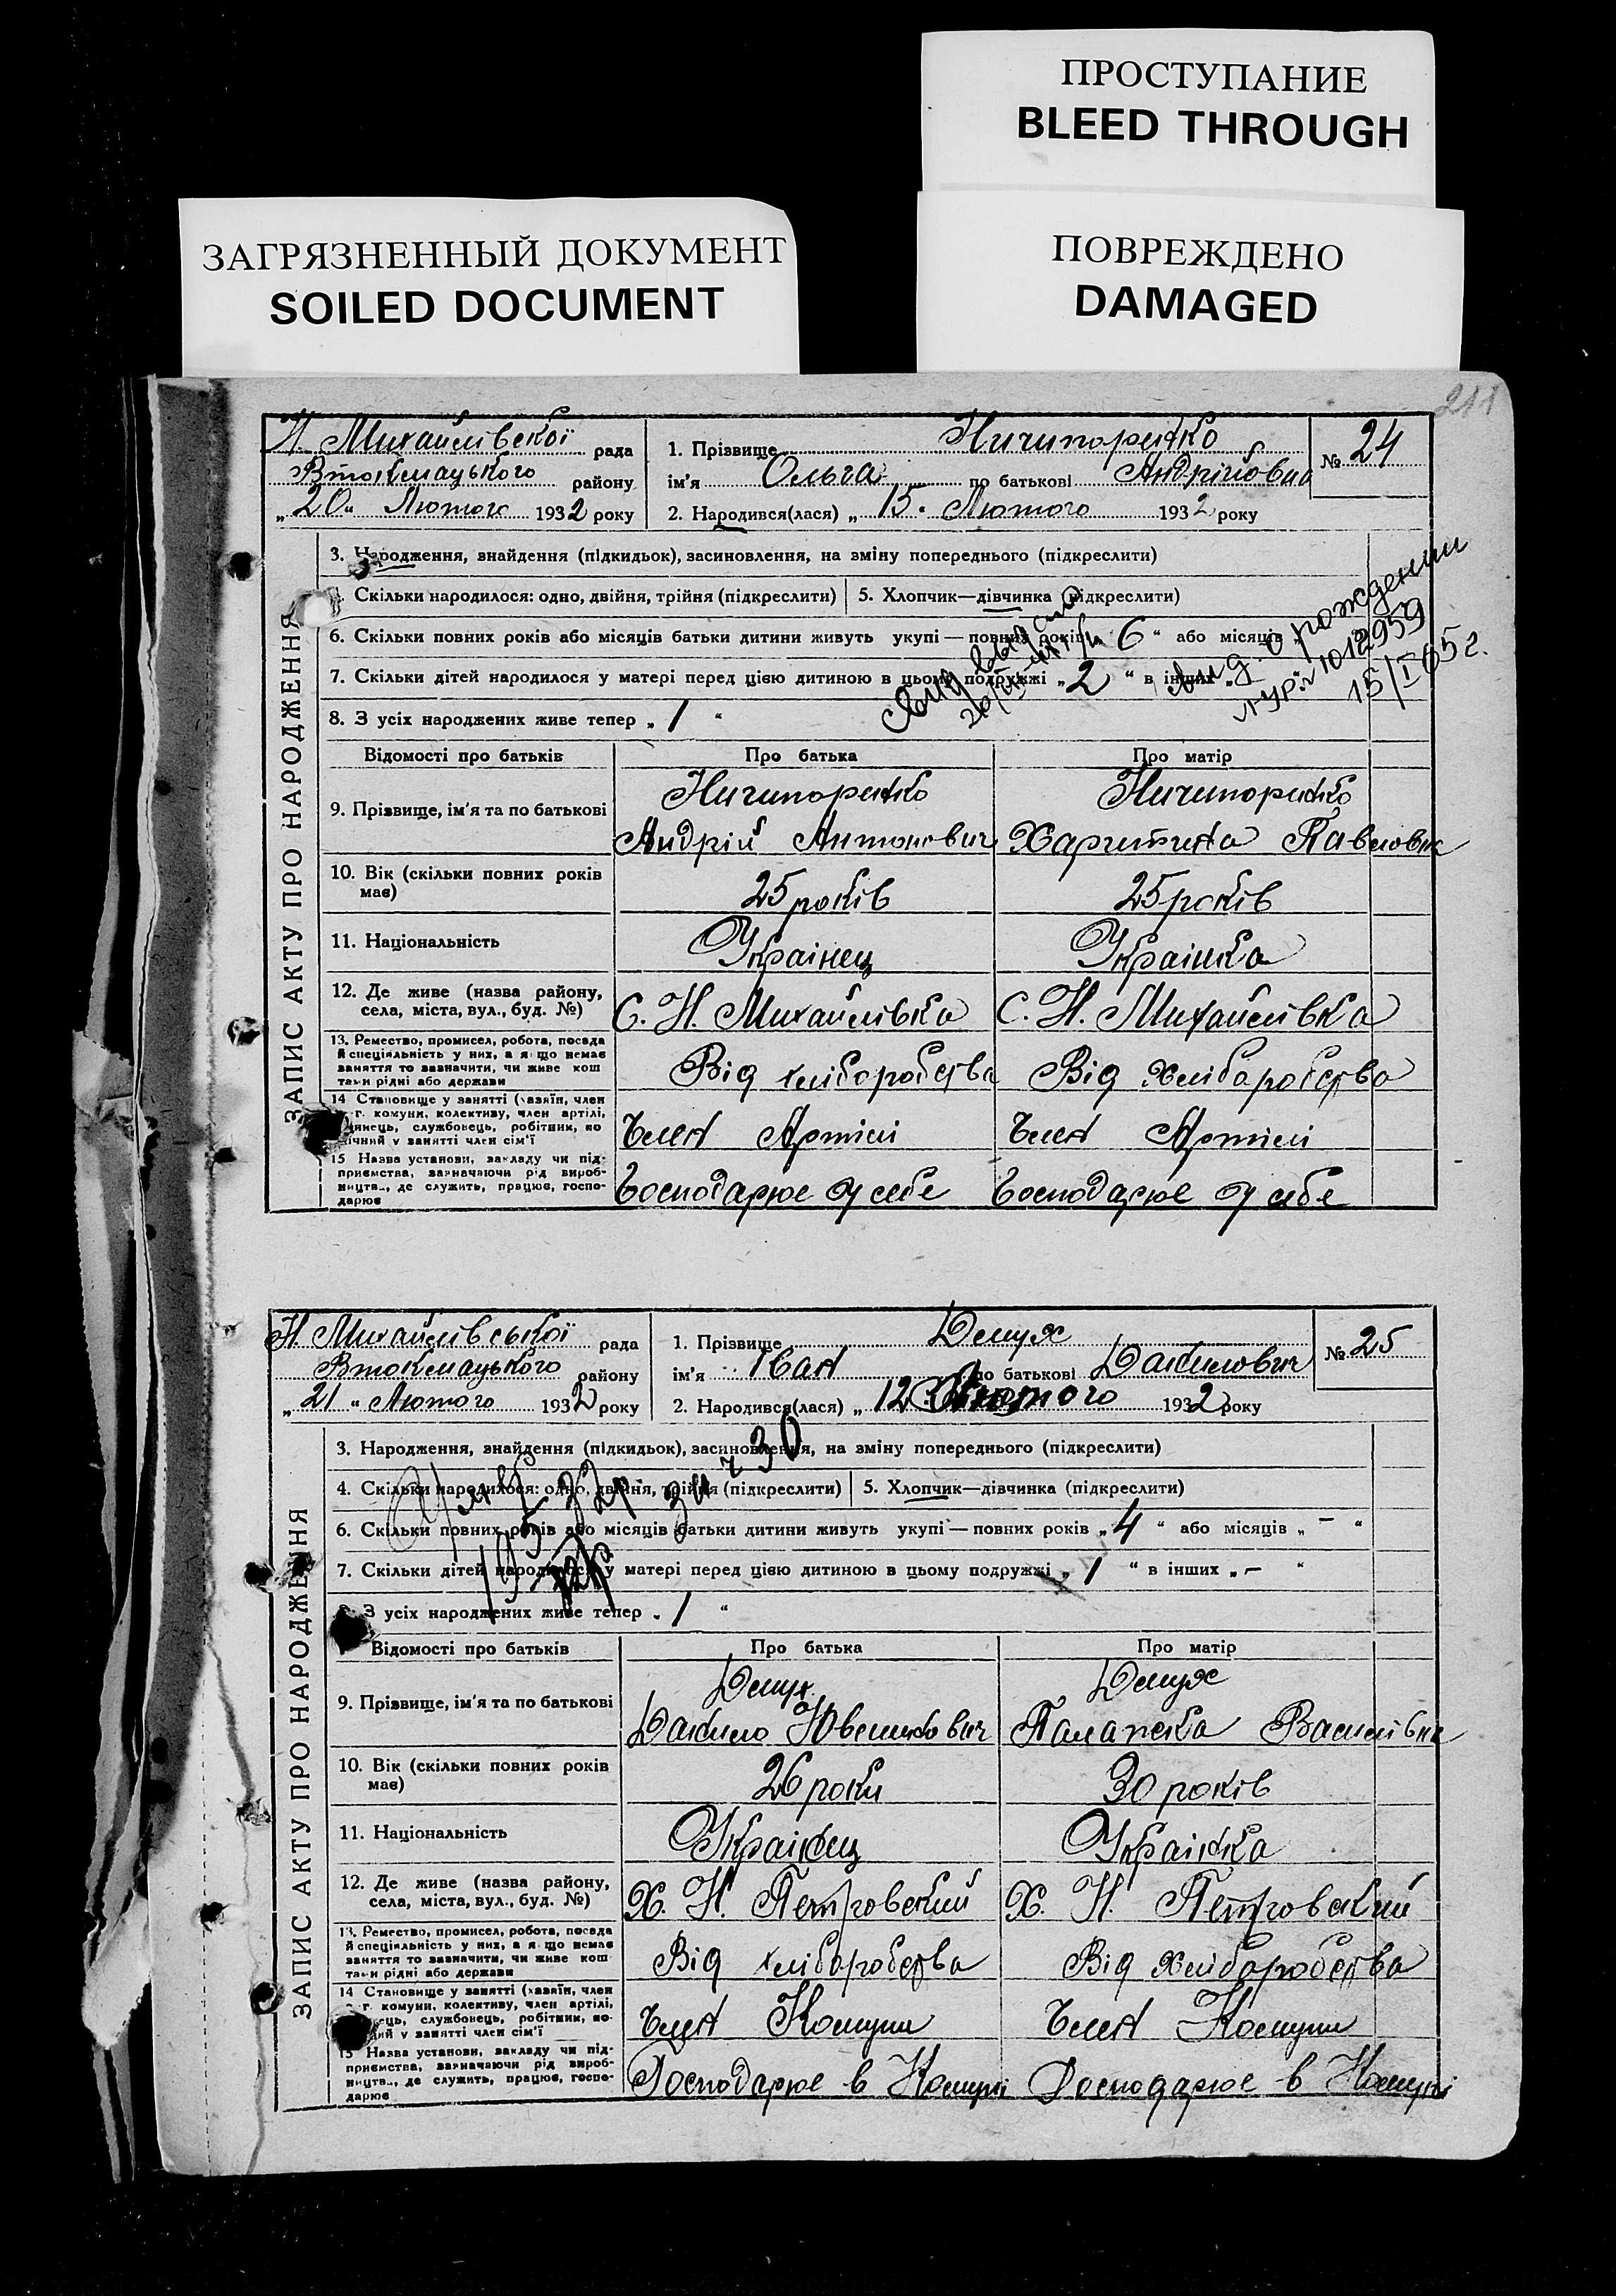 ПРОСТУПАНИЕ
BLEED THROUGH
ЗАГРЯЗНЕННЫЙ ДОКУМЕНТ
SOILED DOCUMENT
ПОВРЕЖДЕНО
DAMAGED
211
ЗАПИС АКТУ ПРО НАРОДЖЕННЯ
Н. Михайлівської рада
Втокмацького району
„20“ Лютого 1932 року
1. Прізвище Ничипоренко
ім'я Ольга по батькові Андріївна
2. Народився(лася) „15. Лютого 1932 року
№ 24
3. Народження, знайдення (підкидьок), засиновлення, на зміну попереднього (підкреслити)
Скільки народилося: одно, двійня, трійня (підкреслити) 5. Хлопчик—дівчинка (підкреслити)
6. Скільки повних років або місяців батьки дитини живуть укупі—повних років 6 “ або місяців
7. Скільки дітей народилося у матері перед цією дитиною в цьому подружжі „2“ в інших „
8. З усіх народжених живе тепер „1“
о рождении
1012959
15/I 65 г.
Відомості про батьків Про батька Про матір
9. Прізвище, ім'я та по батькові Ничипоренко Ничипоренко
Андрій Антонович Харитина Павловна
10. Вік (скільки повних років має) 25 років 25 років
11. Національність Украінец Украінка
12. Де живе (назва району, села, міста, вул., буд. №) С. Н. Михайлівка С. Н. Михайлівка
13. Ремество, промисел, робота, посада й спеціяльність у них, а я що немає заняття то зазначити, чи живе кош тами рідні або держави Від хліборобства Від хліборобства
14 Становище у занятті (хазяїн, член г. комуни, колективу, член артілі, службовець, робітник, по у занятті член сім'ї Член Артілі Член Артілі
15 Назва установи, закладу чи підприємства, зазначаючи рід виробництв., де служить, працює, господарює Господарює у себе Господарює у себе
ЗАПИС АКТУ ПРО НАРОДЖЕННЯ
Н. Михайлівської рада
Втокмацького району
„21“ Лютого 1932 року
1. Прізвище Демух
ім'я Іван по батькові Данилович
2. Народився(лася) „12 Лютого 1932 року
№ 25
3. Народження, знайдення (підкидьок), засиновлення, на зміну попереднього (підкреслити)
4. Скільки народилося: одно, двійня, трійня (підкреслити) 5. Хлопчик—дівчинка (підкреслити)
6. Скільки повних років або місяців батьки дитини живуть укупі—повних років „4“ або місяців „–“
7. Скільки дітей народилося у матері перед цією дитиною в цьому подружжі „1“ в інших „–“
З усіх народжених живе тепер „1“
Відомості про батьків Про батька Про матір
9. Прізвище, ім'я та по батькові Демух Демух
Данило Палажка Василівна
10. Вік (скільки повних років має) 26 роки 30 років
11. Національність Украінец Украінка
12. Де живе (назва району, села, міста, вул., буд. №) Х. Н. Петровский Х. Н. Петровский
13. Ремество, промисел, робота, посада й спеціяльність у них, а я що немає заняття то зазначити, чи живе кош тами рідні або держави Від хліборобства Від хліборобства
14 Становище у занятті (хазяїн, член г. комуни, колективу, член артілі, службовець, робітник, по у занятті член сім'ї Член Комуни Член Комуни
15 Назва установи, закладу чи підприємства, зазначаючи рід виробництв., де служить, працює, господарює Господарює в Комуні Господарює в Комуні